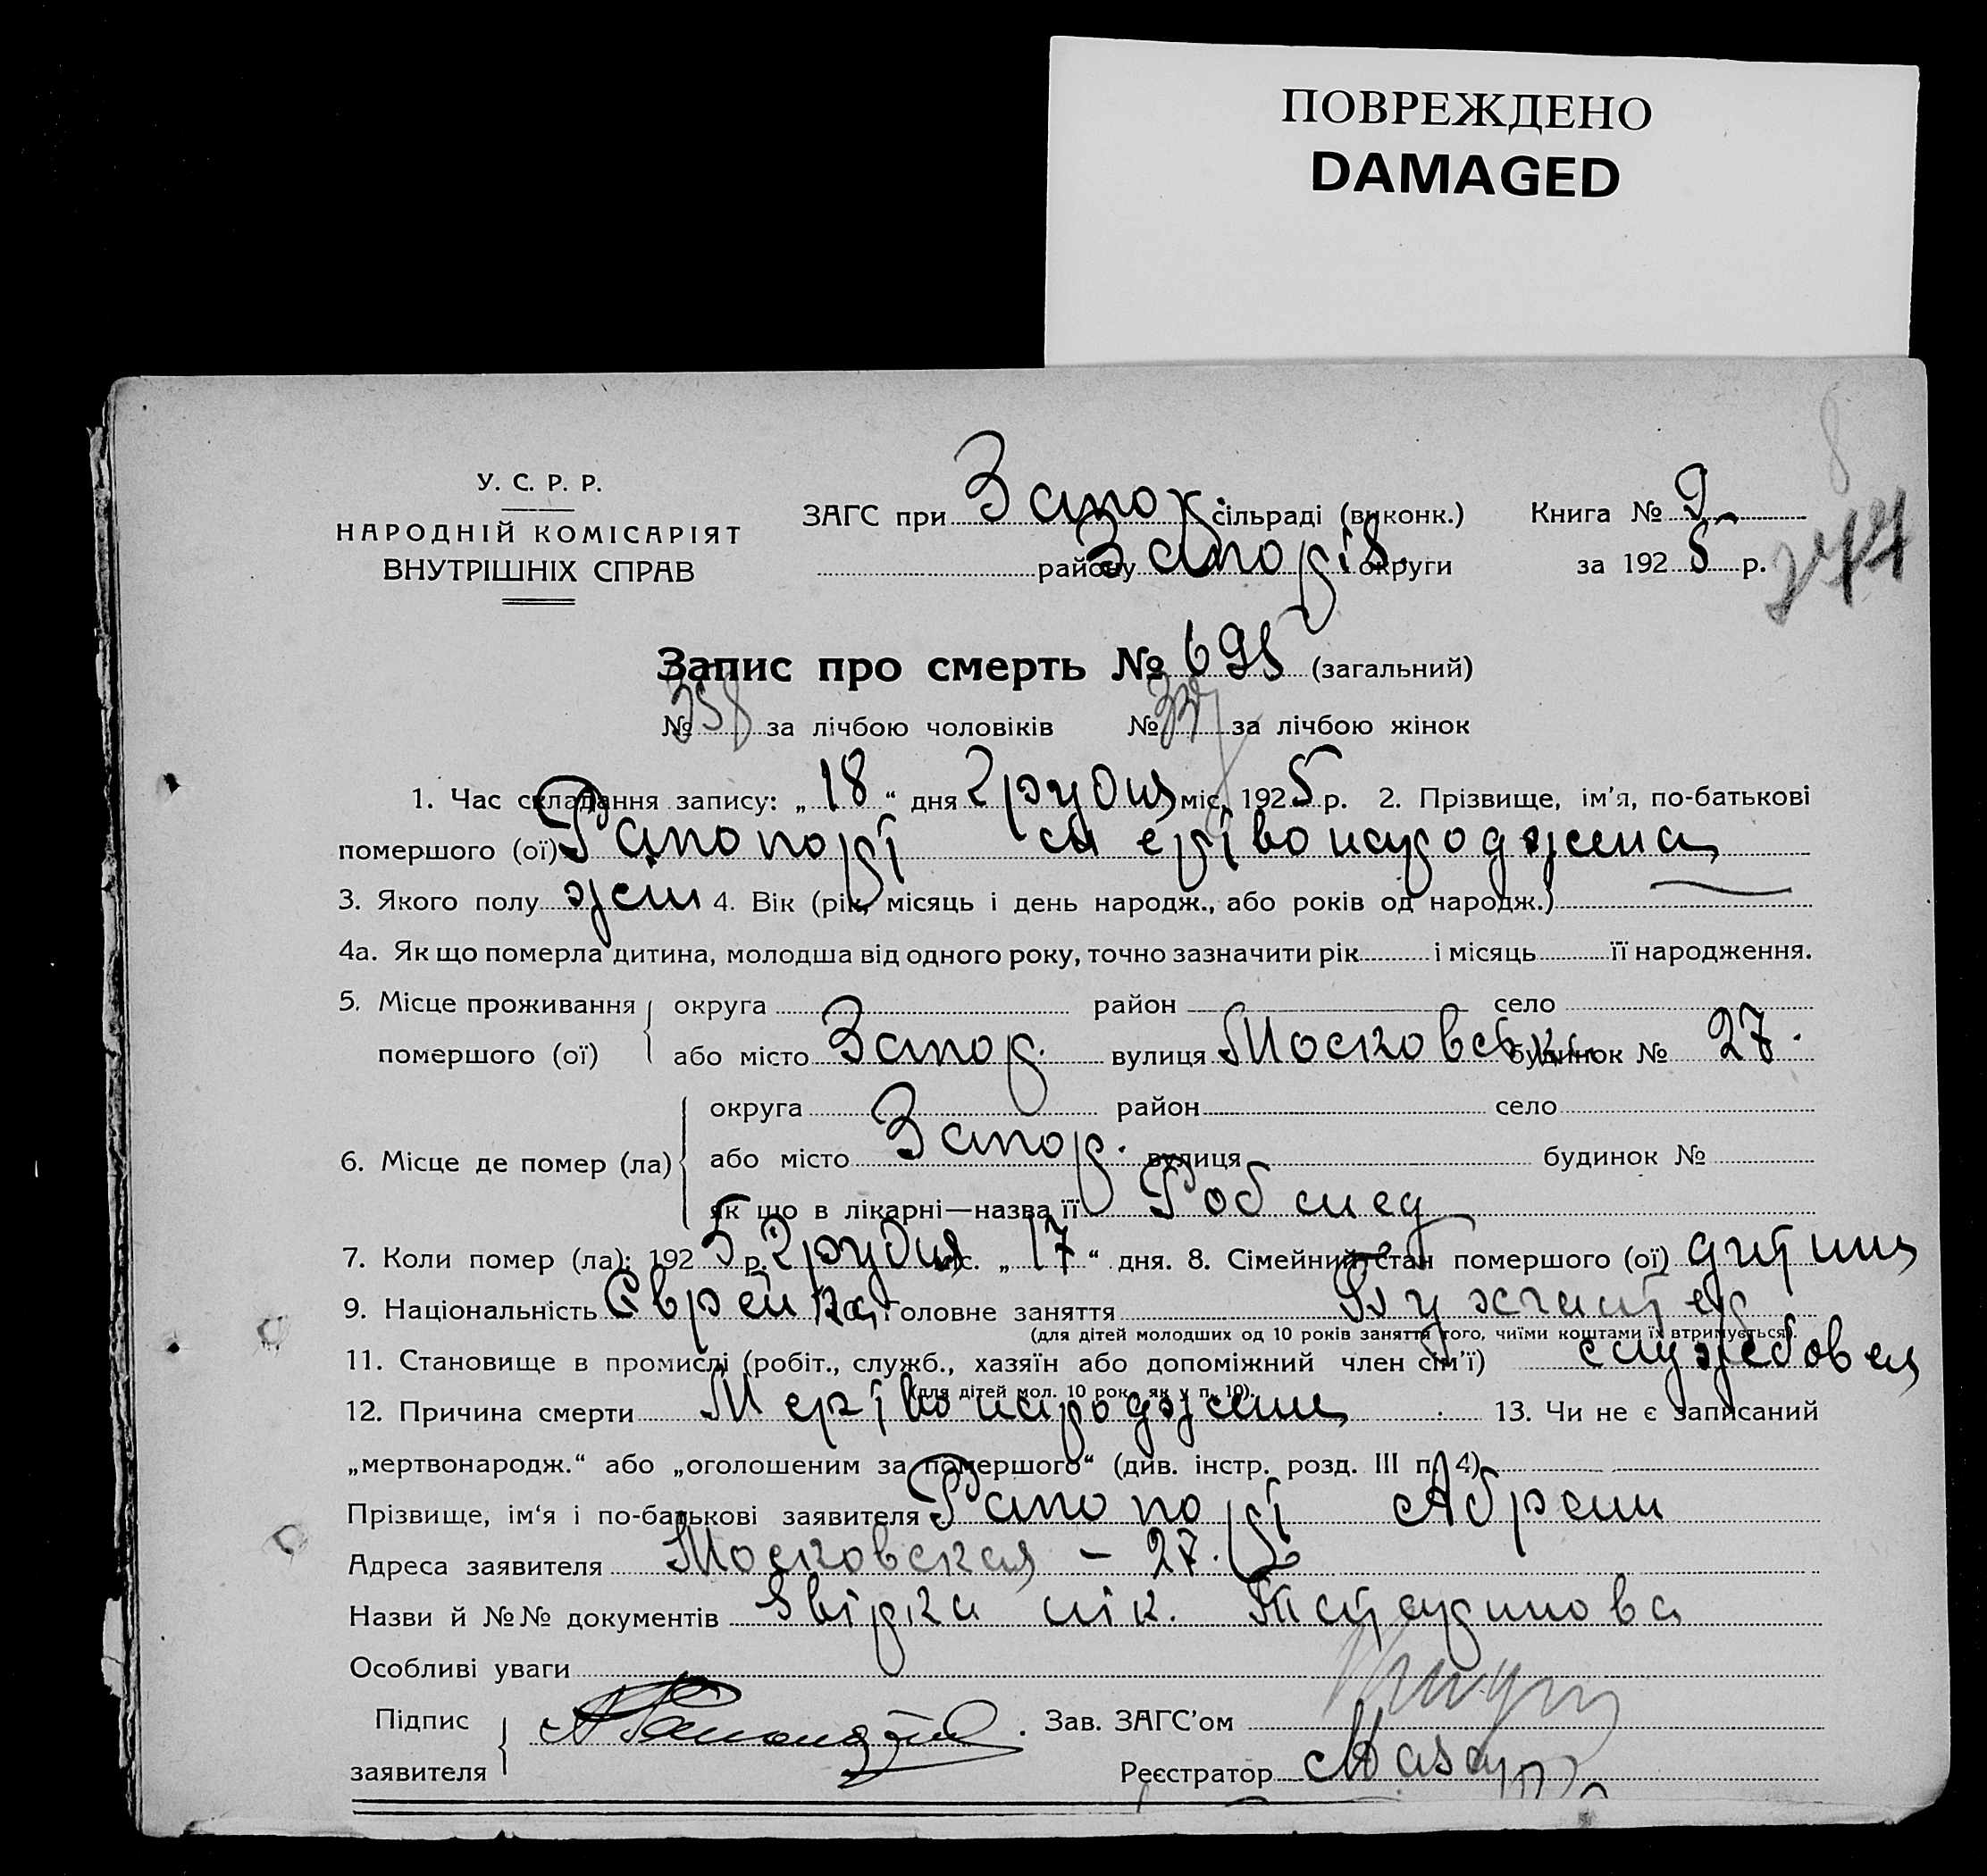 ПОВРЕЖДЕНО
DAMAGED
У. С. Р. Р.
НАРОДНІЙ КОМІСАРІЯТ
ВНУТРІШНІХ СПРАВ
ЗАГС при Запор сільраді (виконк.)
району Запоріз. округи
Книга №
за 1925 р.
Запис про смерть № 695 (загальний)
№ 358 за лічбою чоловіків № за лічбою жінок
1. Час складання запису: „18“ дня Грудня міс. 1925 р. 2. Прізвище, ім'я, по-батькові
помершого (ої) Рапопорт мертвонароджена
3. Якого полу жін 4. Вік (рік, місяць і день народж., або років од народж.)
4а. Як що померла дитина, молодша від одного року, точно зазначити рік і місяць її народження.
5. Місце проживання округа район село
помершого (ої) або місто Запор. вулиця Московськ. будинок № 27.
округа район село
6. Місце де помер (ла) або місто Запор. вулиця будинок №
як що в лікарні—назва її Роб мед
7. Коли помер (ла): 1925 р. Грудня міс. „17“ дня. 8. Сімейний стан помершого (ої) дитина
9. Національність Єврейка Головне заняття Бухгалтер
(для дітей молодших од 10 років заняття того, чиїми коштами їх втримується).
11. Становище в промислі (робіт., служб., хазяїн або допоміжний член сім'ї) службовец
(для дітей мол. 10 рок., як у п. 10).
12. Причина смерти Мертвонароджена 13. Чи не є записаний
„мертвонародж.“ або „оголошеним за помершого“ (див. інстр. розд. III п. 4)
Прізвище, ім'я і по-батькові заявителя Рапопорт Абрам
Адреса заявителя Московская – 27.
Назви й №№ документів Звірка лік.
Особливі уваги
Підпис
заявителя
Зав. ЗАГС'ом
Реєстратор